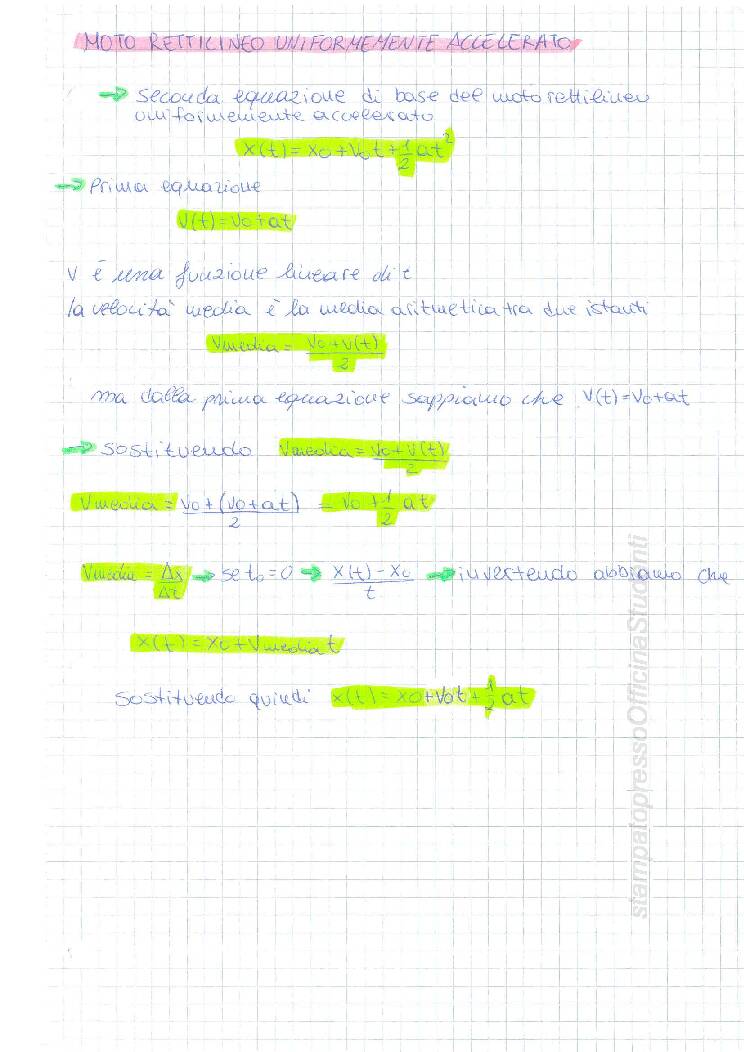 MOTO RETTILINEO UNIFORMEMENTE ACCELERATO
→ seconda equazione di base del moto rettilineo
uniformemente accelerato
x(t) = x0 + v0t + 1/2 at²
→ Prima equazione
v(t) = v0 + at
v è una funzione lineare di t
la velocità media è la media aritmetica tra due istanti
Vmedia = (v0 + v(t))/2
ma dalla prima equazione sappiamo che v(t) = v0 + at
→ sostituendo Vmedia = (v0 + v(t))/2
Vmedia = (v0 + (v0 + at))/2 = v0 + 1/2 at
Vmedia = Δx/Δt → se t0 = 0 → (x(t) - x0)/t → invertendo abbiamo che
x(t) = x0 + Vmedia t
sostituendo quindi x(t) = x0 + v0t + 1/2 at
stampatopressoOfficinaStudenti